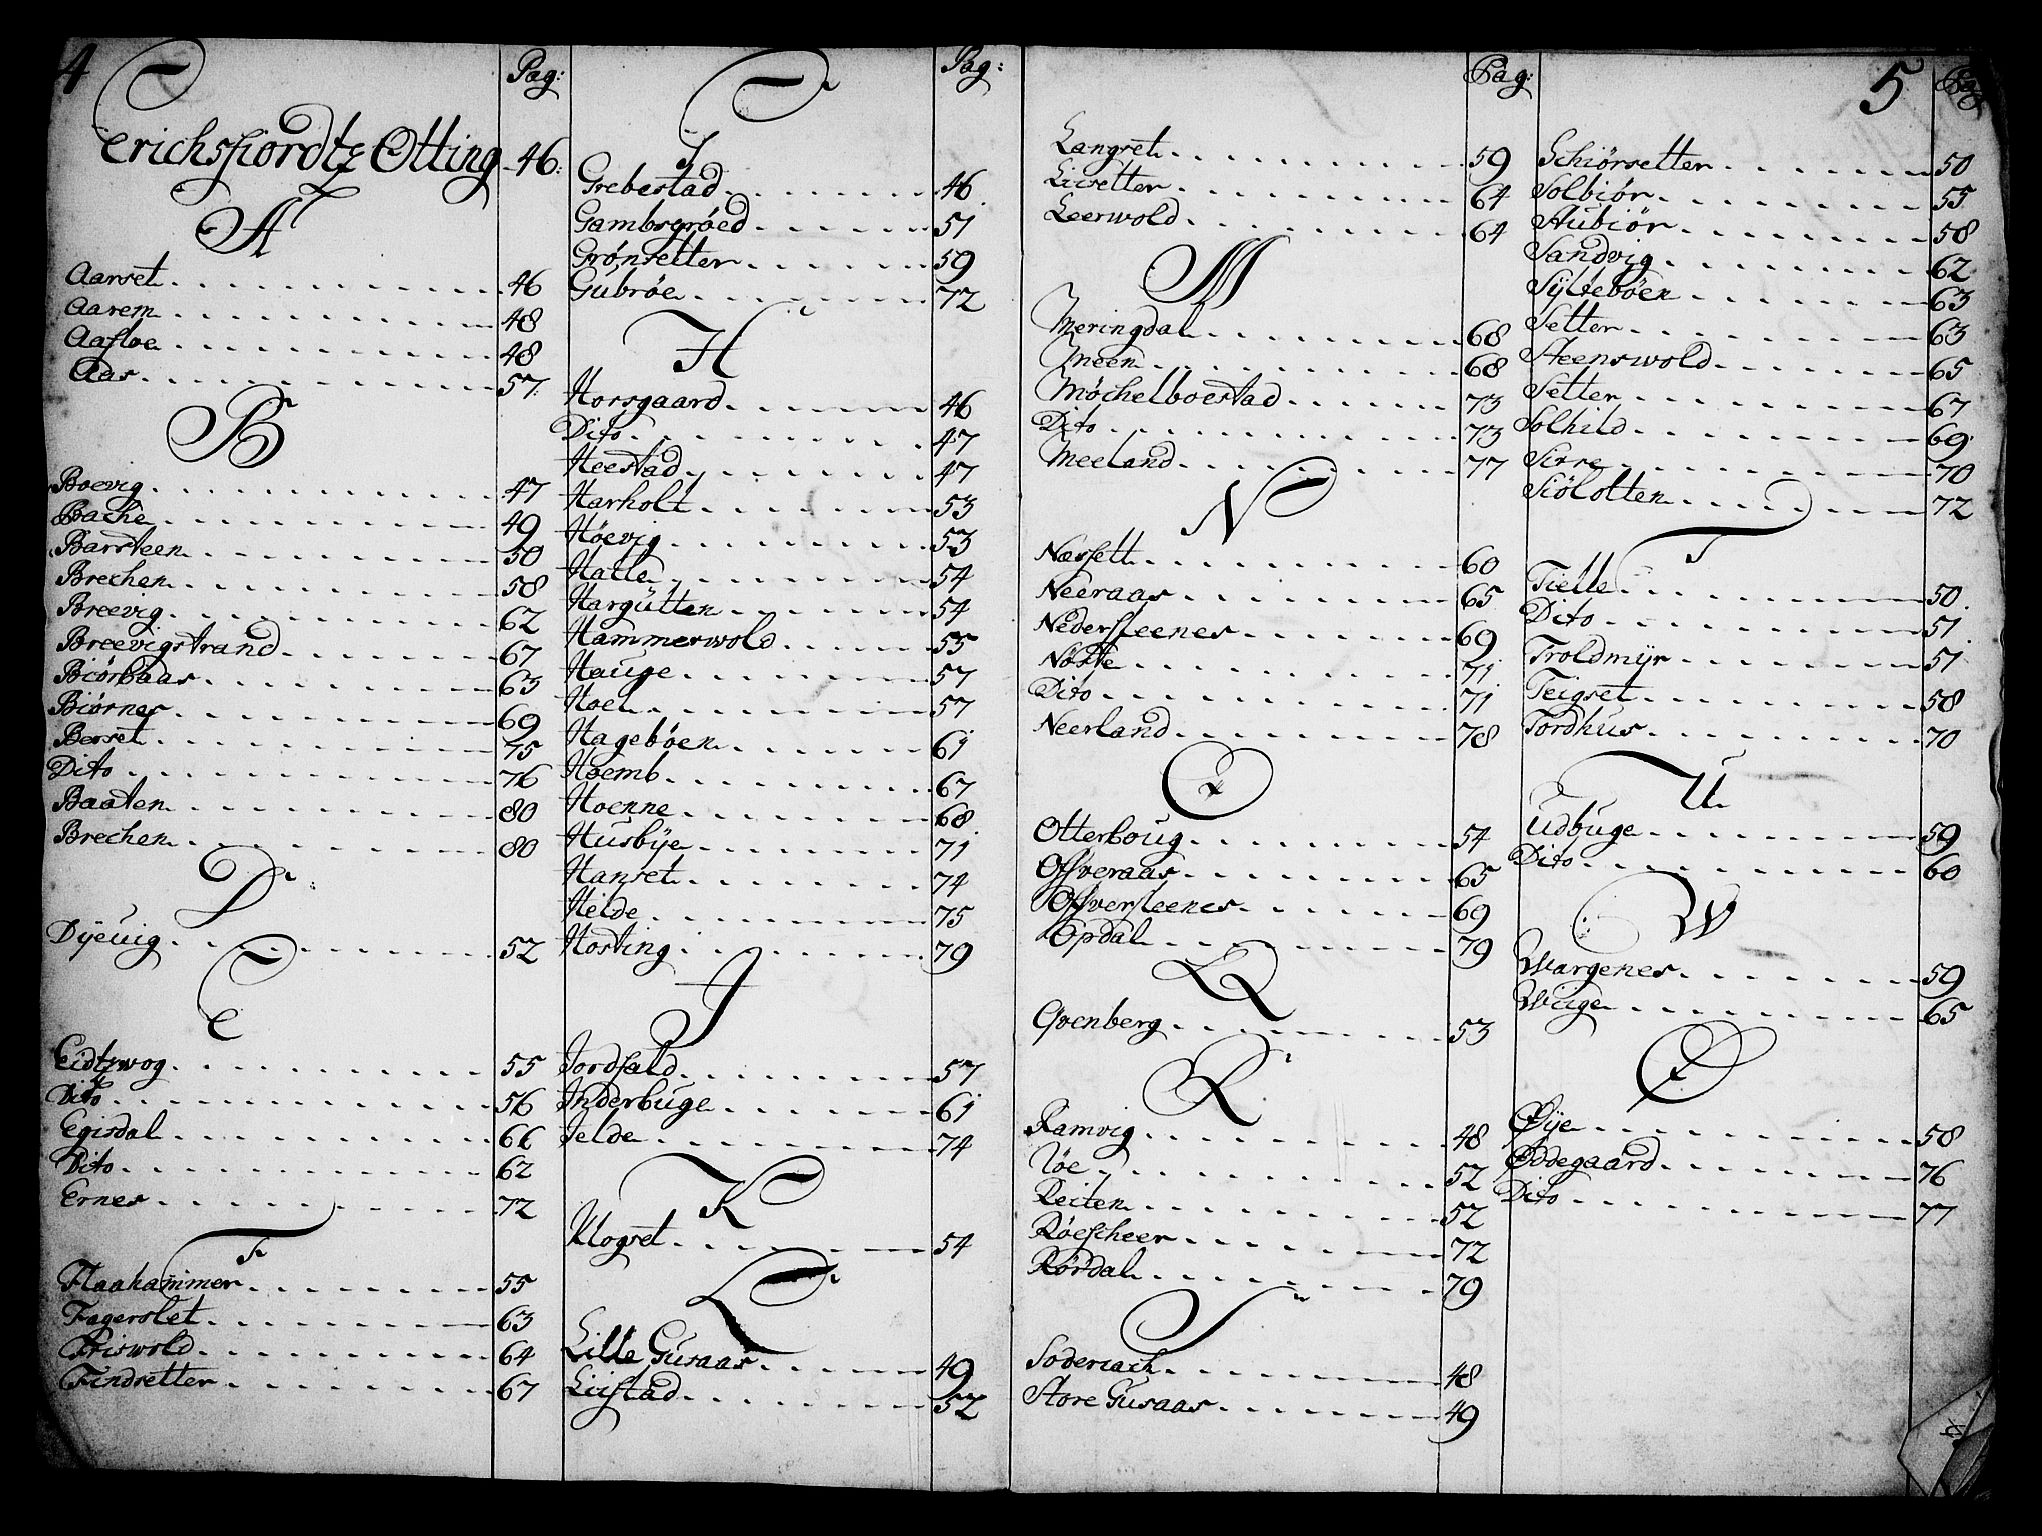 4
Pag:
Erichsfiordtz Otting 46:
A
Aarset 46
Aarem 48
Aafloe 48
Aas 57
B
Boevig 47
Bache 49
Barsteen 50
Brechen 58
Breevig 62
Breevigstrand 67
Biørbaas 63
Biørnes 69
Berset 75
Dito 76
Baaten 80
Brechen 80
D
Dÿevig 52
E
Eidtzwog 55
Dito 56
Egisdal 66
Dito 62
Ernes 72
F
Flaahammer 55
Fagerslet 63
Friswold 64
Findsetter 67
Pag:
G
Grebestad 46
Gambsgrøed 51
Grønsetter 59
Gubrøe 72
H
Horsgaard 46
Dito 47
Heestad 47
Harholt 53
Høevig 53
Hatle 54
Hargütten 54
Hammerwold 55
Hauge 57
Hoel 57
Hagebøen 61
Hoemb 67
Hoenne 68
Husbÿe 71
Hanset 74
Helde 75
Hosting 79
J
Jordfald 57
Inderbuge 61
Jelde 74
K
Klogset 54
L
Lille Gusaas 49
Liistad 52
Pag:
Langset 59
Liisetter 64
Leerwold 64
M
Meringdal 68
Meen 68
Møchelboestad 73
Dito 73
Meeland 77
N
Næssett 60
Neeraas 65
Nedersteenes 69
Nøste 71
Dito 71
Neerland 78
O
Otterboug 54
Offveraas 65
Offversteenes 69
Opdal 79
Q
Qvenberg 53
R
Ramvig 48
Røe 52
Reiten 52
Røescheer 72
Rørdal 79
S
Soderiach 48
Store Gusaas 49
5
Pag
Schiørsetter 50
Solbiør 55
Stubiør 58
Sandvig 62
Sÿltebøen 63
Setter 63
Steenswold 65
Setter 67
Solhild 69
Sirre 70
Siölotten 72
T
Tielle 50
Dito 51
Troldmÿr 51
Teigset 58
Tordhus 70
U
Udbuge 59
Dito 60
W
Wargenes 59
Wuge 65
Ø
Øÿe 58
Øddegaard 76
Dito 77